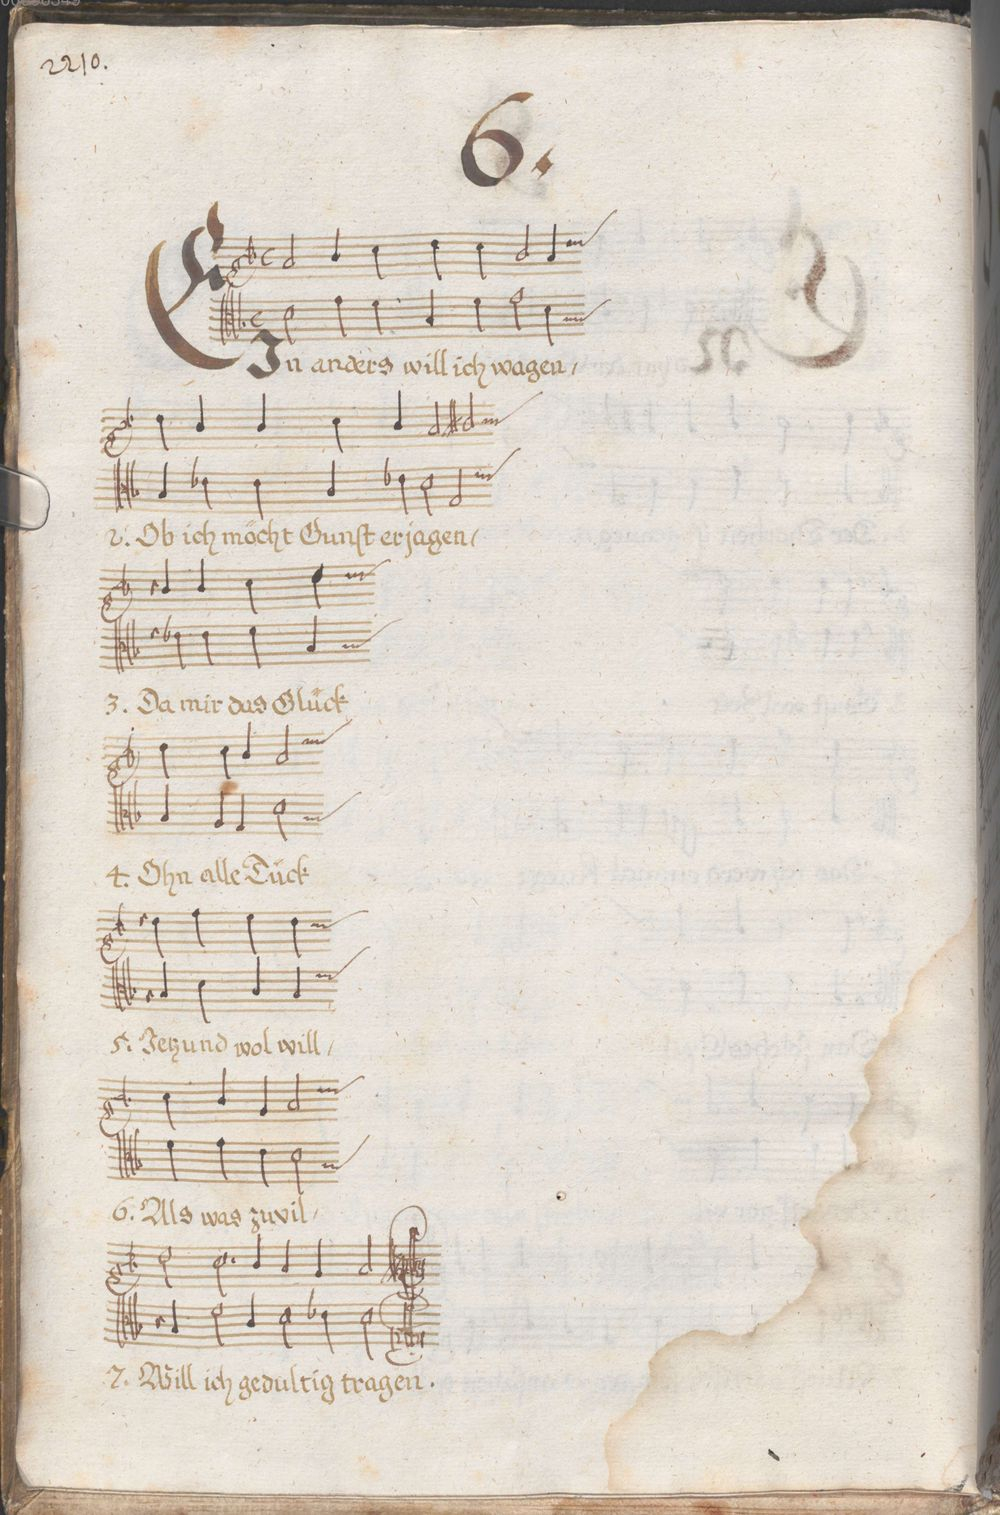 2210.
6.
EIn anders will ich wagen/
2. Ob ich möcht Gunst erjagen/
3. Da mir das Glück
4. Ohn alle Tück
5. Jetzund wol will/
6. Als was zuvil/
7. Will ich gedultig tragen.